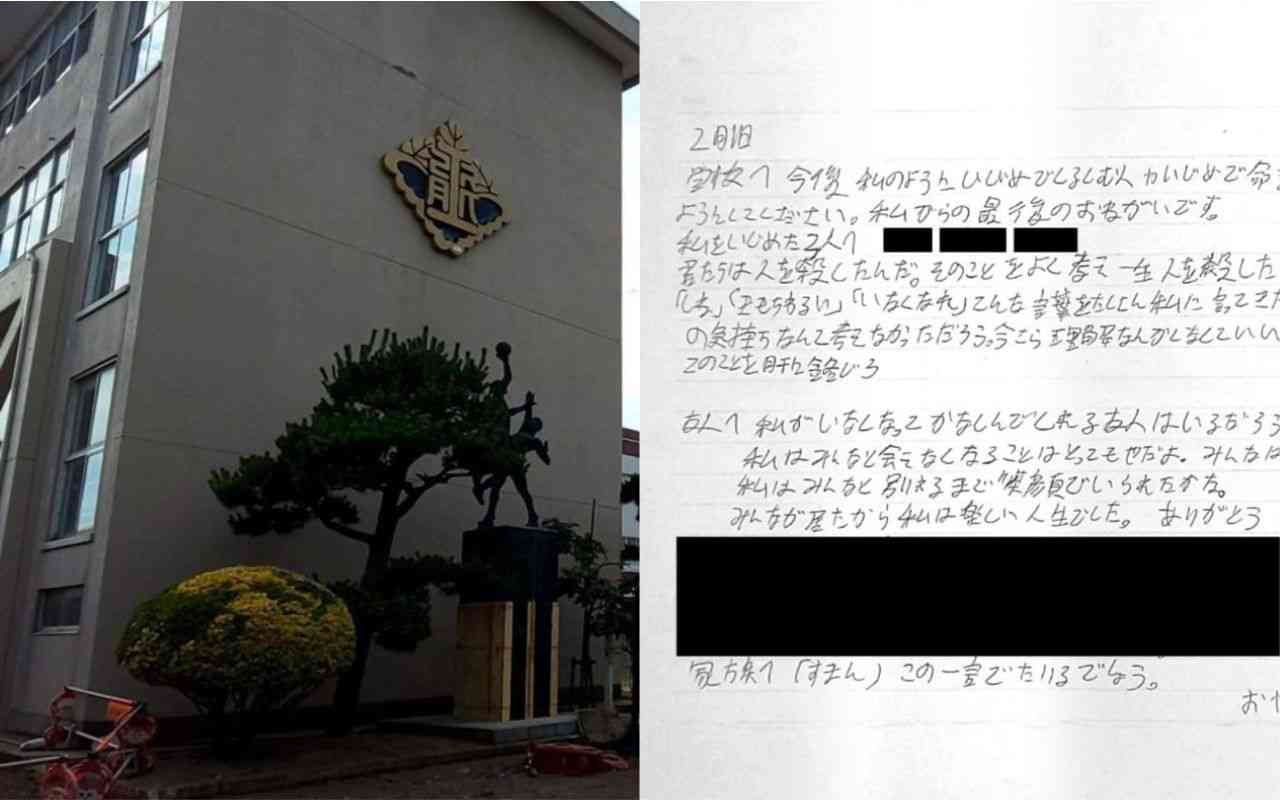 2月1日
学校へ 今後 私のようにいじめでくるしむ人やいじめで命
ようにしてください。私からの最後のおねがいです。
私をいじめた2人へ
君たちは人を殺したんだ。そのことをよく考えて一生人を殺した
「しね」「きもちわるい」「いなくなれ」こんな言葉をたくさん私に言ってきた
の気持ちなんて考えてなかっただろう。今さら理解なんかしなくていい
このことを肝に銘じろ
友人へ 私がいなくなってかなしんでくれる友人はいるだろう
私はみんなと会えなくなることはとてもやだよ。みんなは
私はみんなと別れるまで笑顔でいられたかな。
みんなが居たから私は楽しい人生でした。 ありがとう
家族へ「すまん」この一言でたりるでしょう。